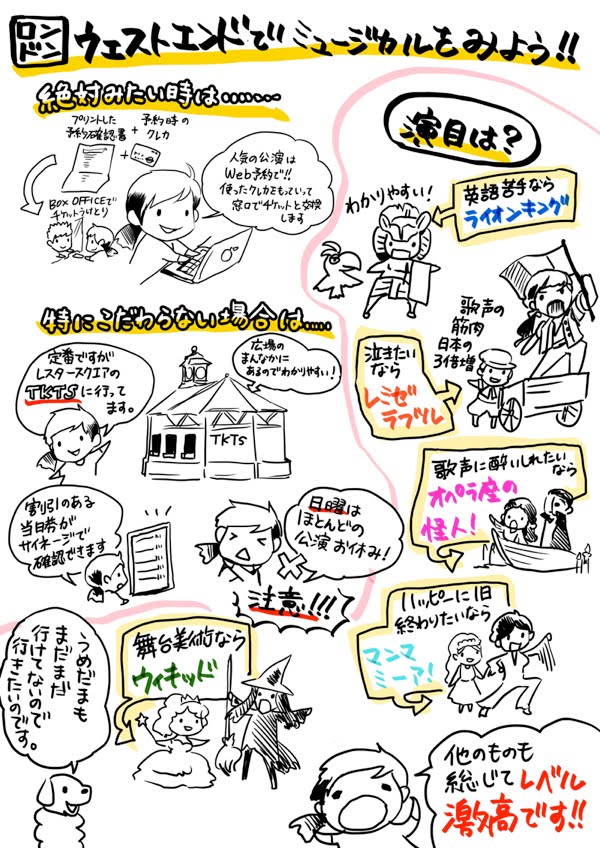 ロンドン
ウェストエンドでミュージカルをみよう!!
絶対みたい時は……
プリントした
予約確認書
+
予約時の
クレカ
+
BOX OFFICEで
チケットうけとり
人気の公演は
Web予約で!!
使ったクレカをもっていって
窓口でチケットと交換
します
特にこだわらない場合は……
定番ですが
レスタースクエアの
TKTSに行って
ます。
広場の
まんなかに
あるのでわかりやすい!
TKTS
割引のある
当日券が
サイネージで
確認できます
日曜は
ほとんどの
公演お休み!
注意!!!
演目は?
わかりやすい!
英語苦手なら
ライオンキング
歌声の
筋肉
日本の
3倍増
泣きたい
なら
レミゼ
ラブル
歌声に酔いしれたい
なら
オペラ座の
怪人!
ハッピーに1日
終わりたいなら
マンマ
ミーア!
舞台美術なら
ウィキッド
うめだまも
まだまだ
行けてないので
行きたいのです。
他のものも
総じてレベル
激高です!!